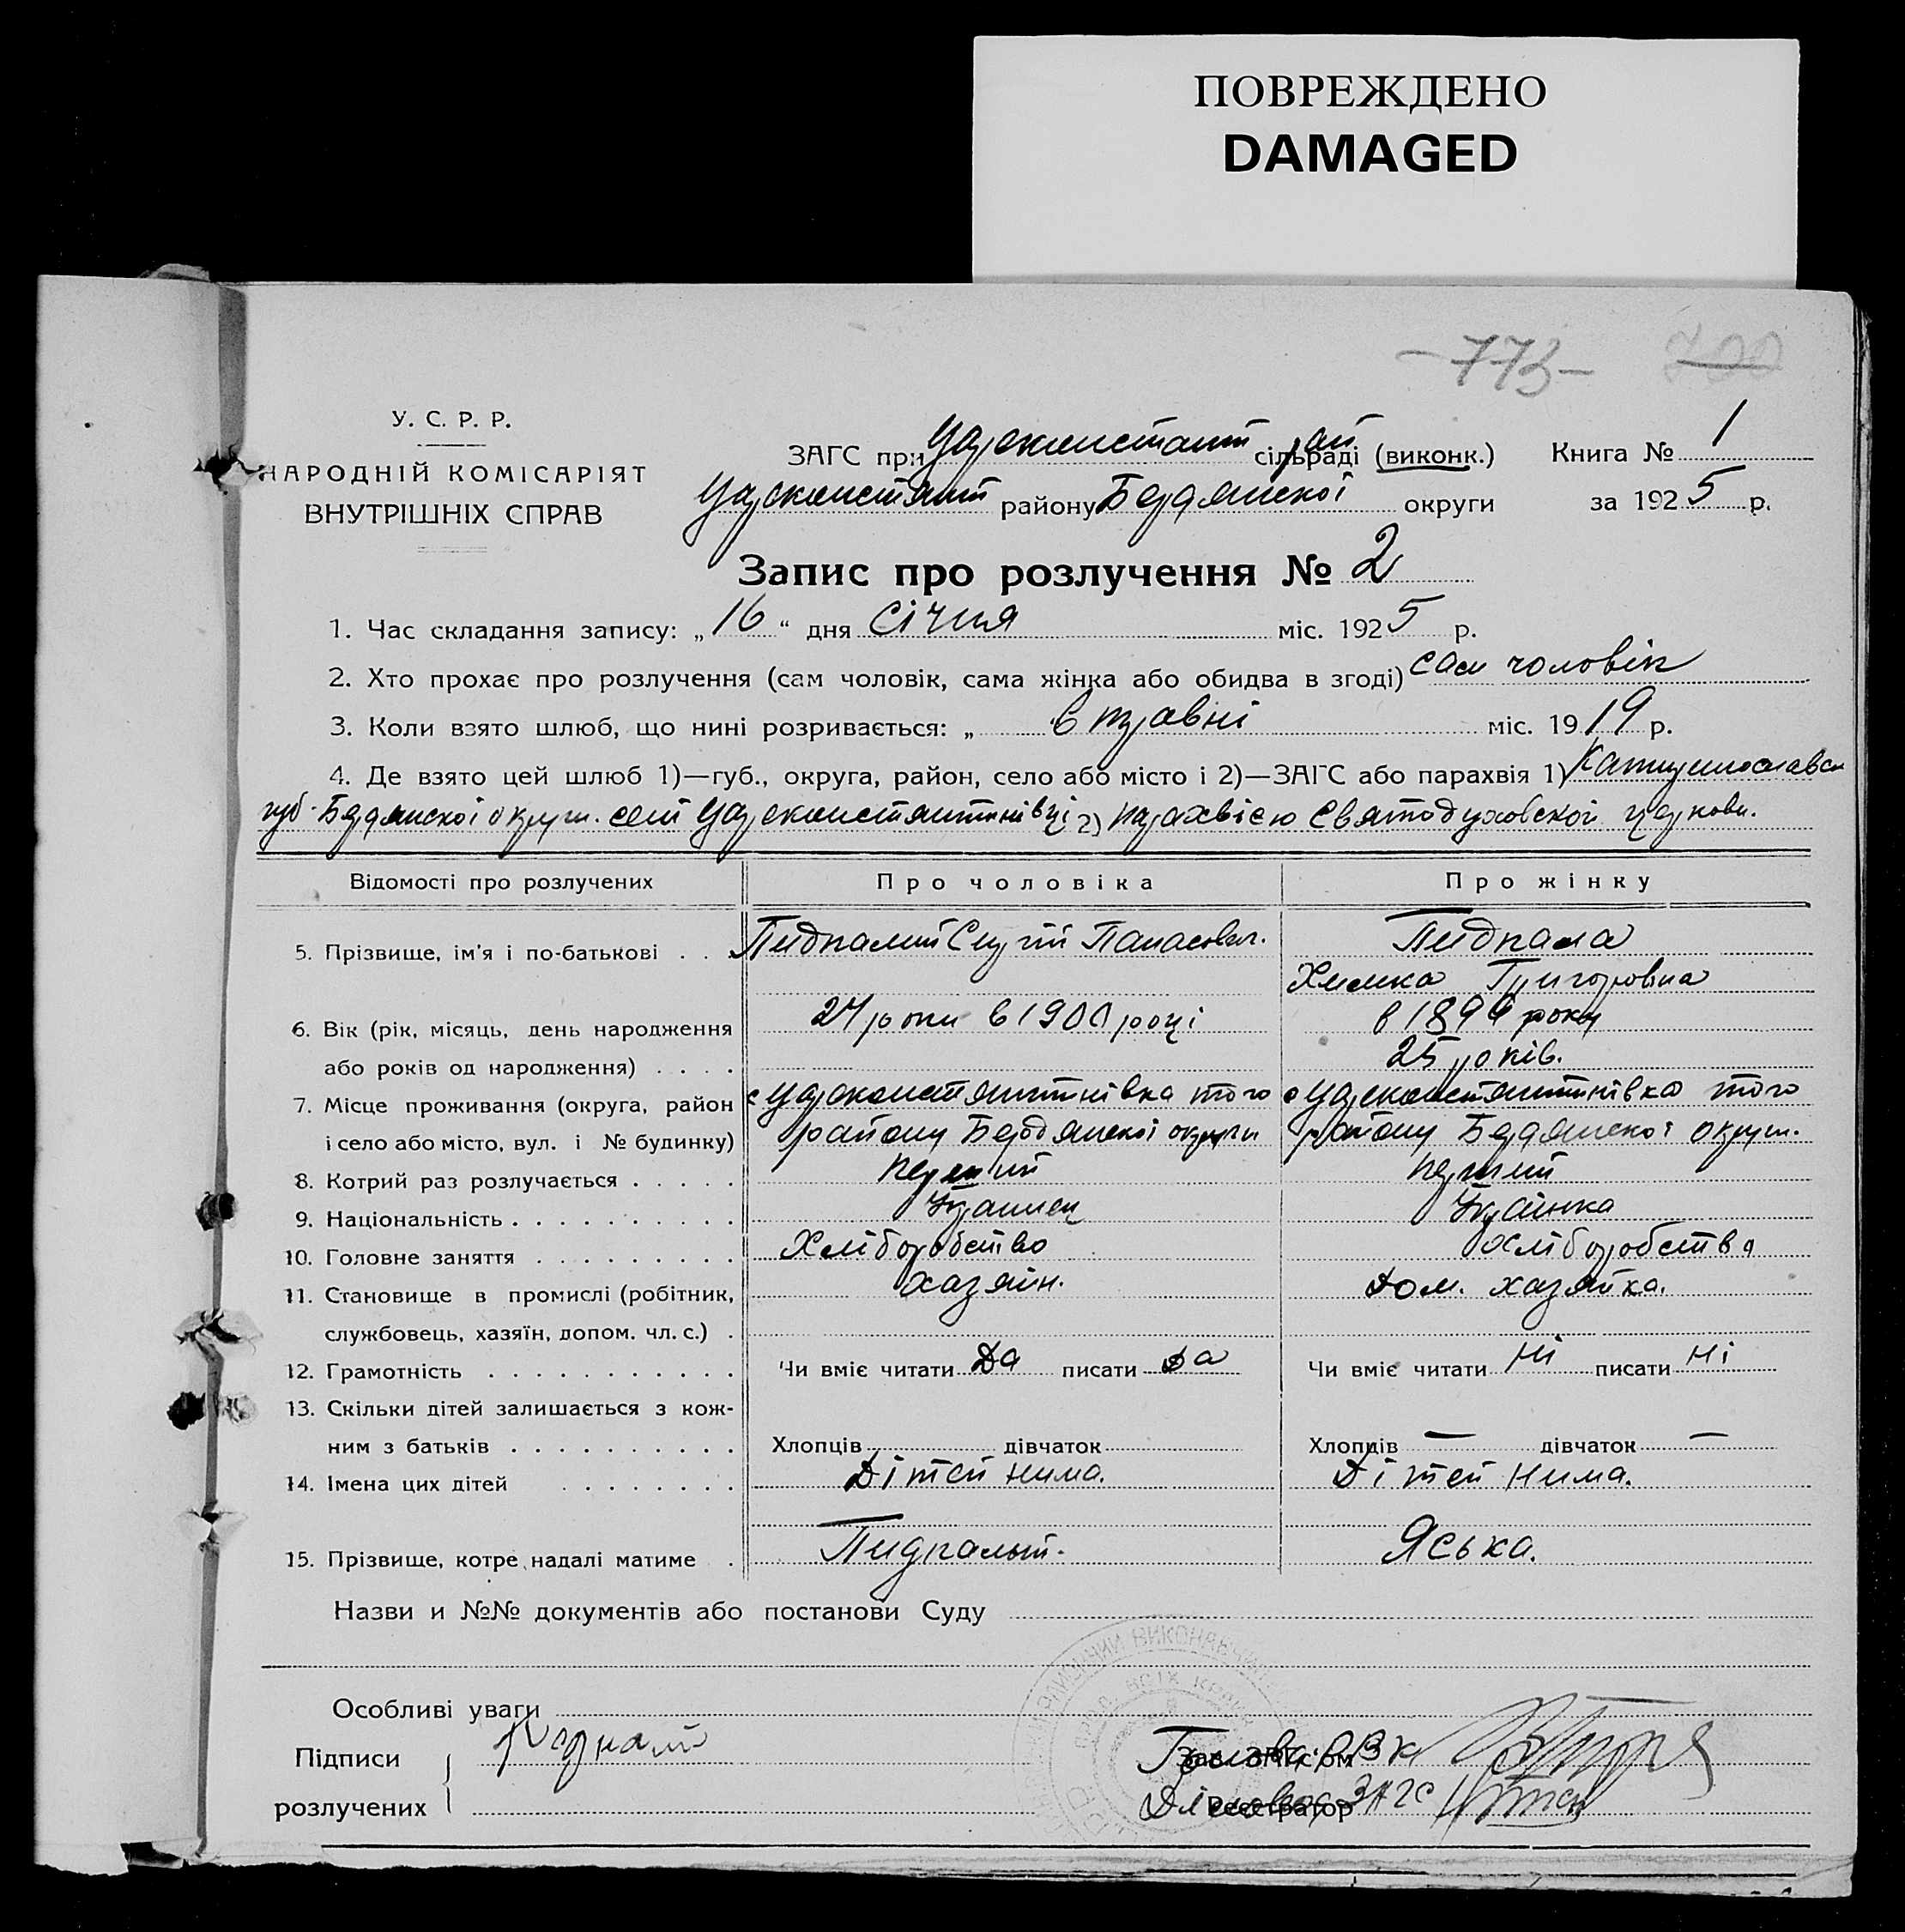 ПОВРЕЖДЕНО
DAMAGED
-773- 700
У. С. Р. Р.
НАРОДНІЙ КОМІСАРІЯТ
ВНУТРІШНІХ СПРАВ
ЗАГС при Царсконстант рай сільраді (виконк.) Книга № 1
Царсконстант району Бердянської округи за 1925 р.
Запис про розлучення № 2
1. Час складання запису: „16“ дня січня міс. 1925 р.
2. Хто прохає про розлучення (сам чоловік, сама жінка або обидва в згоді) сам чоловік
3. Коли взято шлюб, що нині розривається: „ в травні міс. 1919 р.
4. Де взято цей шлюб 1)—губ., округа, район, село або місто і 2)—ЗАГС або парахвія 1) Катиринославськ
губ. Бердянскоі округи. селі Царсконстянтинівці 2) парахвією Святодуховской церкови.
Відомості про розлучених Про чоловіка Про жінку
5. Прізвище, ім'я і по-батькові . . Пидпалий Сергій Панасович. Пидпала
Химка Григоровна
6. Вік (рік, місяць, день народження 24 роки в 1900 році в 1899 року
або років од народження) . . . . 25 років.
7. Місце проживання (округа, район с Царсконстянтинівка того с Царсконстянтинівка того
і село або місто, вул. і № будинку) району Бердянскоі округи району Бердянскоі округи.
8. Котрий раз розлучається . . . . . перший перший
9. Національність . . . . . . . . . . Украинец Украінка
10. Головне заняття . . . . . . . . . Хліборобство Хліборобства
11. Становище в промислі (робітник, хазяїн. дом. хазяйка.
службовець, хазяїн, допом. чл. с.) .
12. Грамотність . . . . . . . . . . . Чи вміє читати Да писати да Чи вміє читати Ні писати Ні
13. Скільки дітей залишається з кож-
ним з батьків . . . . . . . . . . Хлопців дівчаток Хлопців — дівчаток —
14. Імена цих дітей . . . . . . . . Дітей нима. Дітей нима.
15. Прізвище, котре надалі матиме . Пидпалый. Яська.
Назви и №№ документів або постанови Суду
Особливі уваги
Підписи Зав. ЗАГС'ом
розлучених Реєстратор ЗАГС